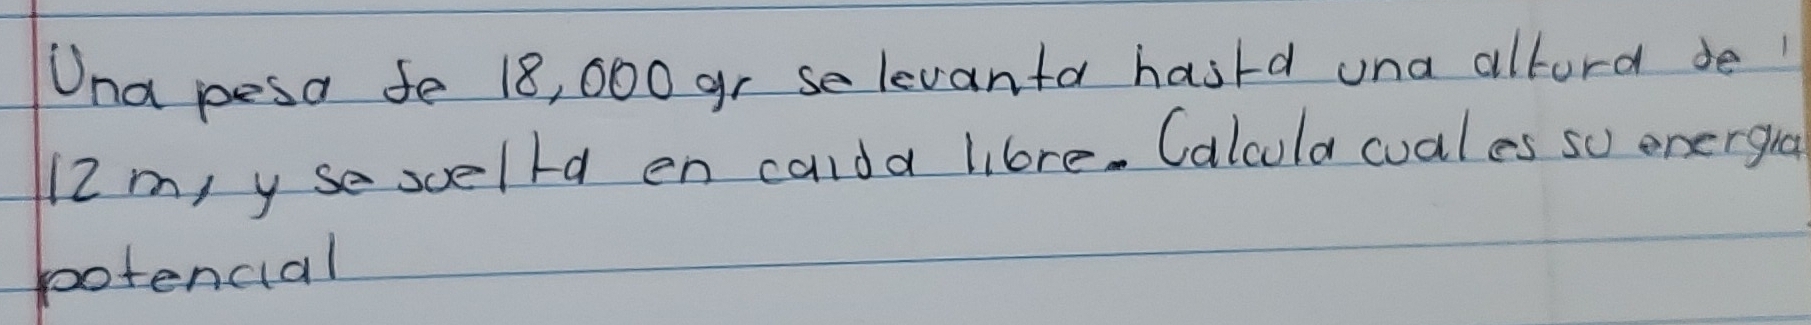 Una pesa de 18,000 gr se levanta hasta una altura de
12 m, y se suelta en caida libre. Calcula cual es su energia
potencial